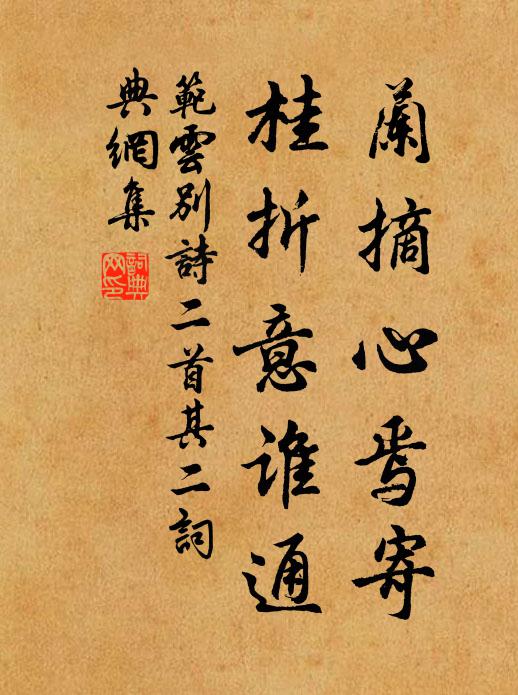 蘭摘心焉寄
桂折意誰通
範雲別詩二首其二詞
典網集
詞典网印